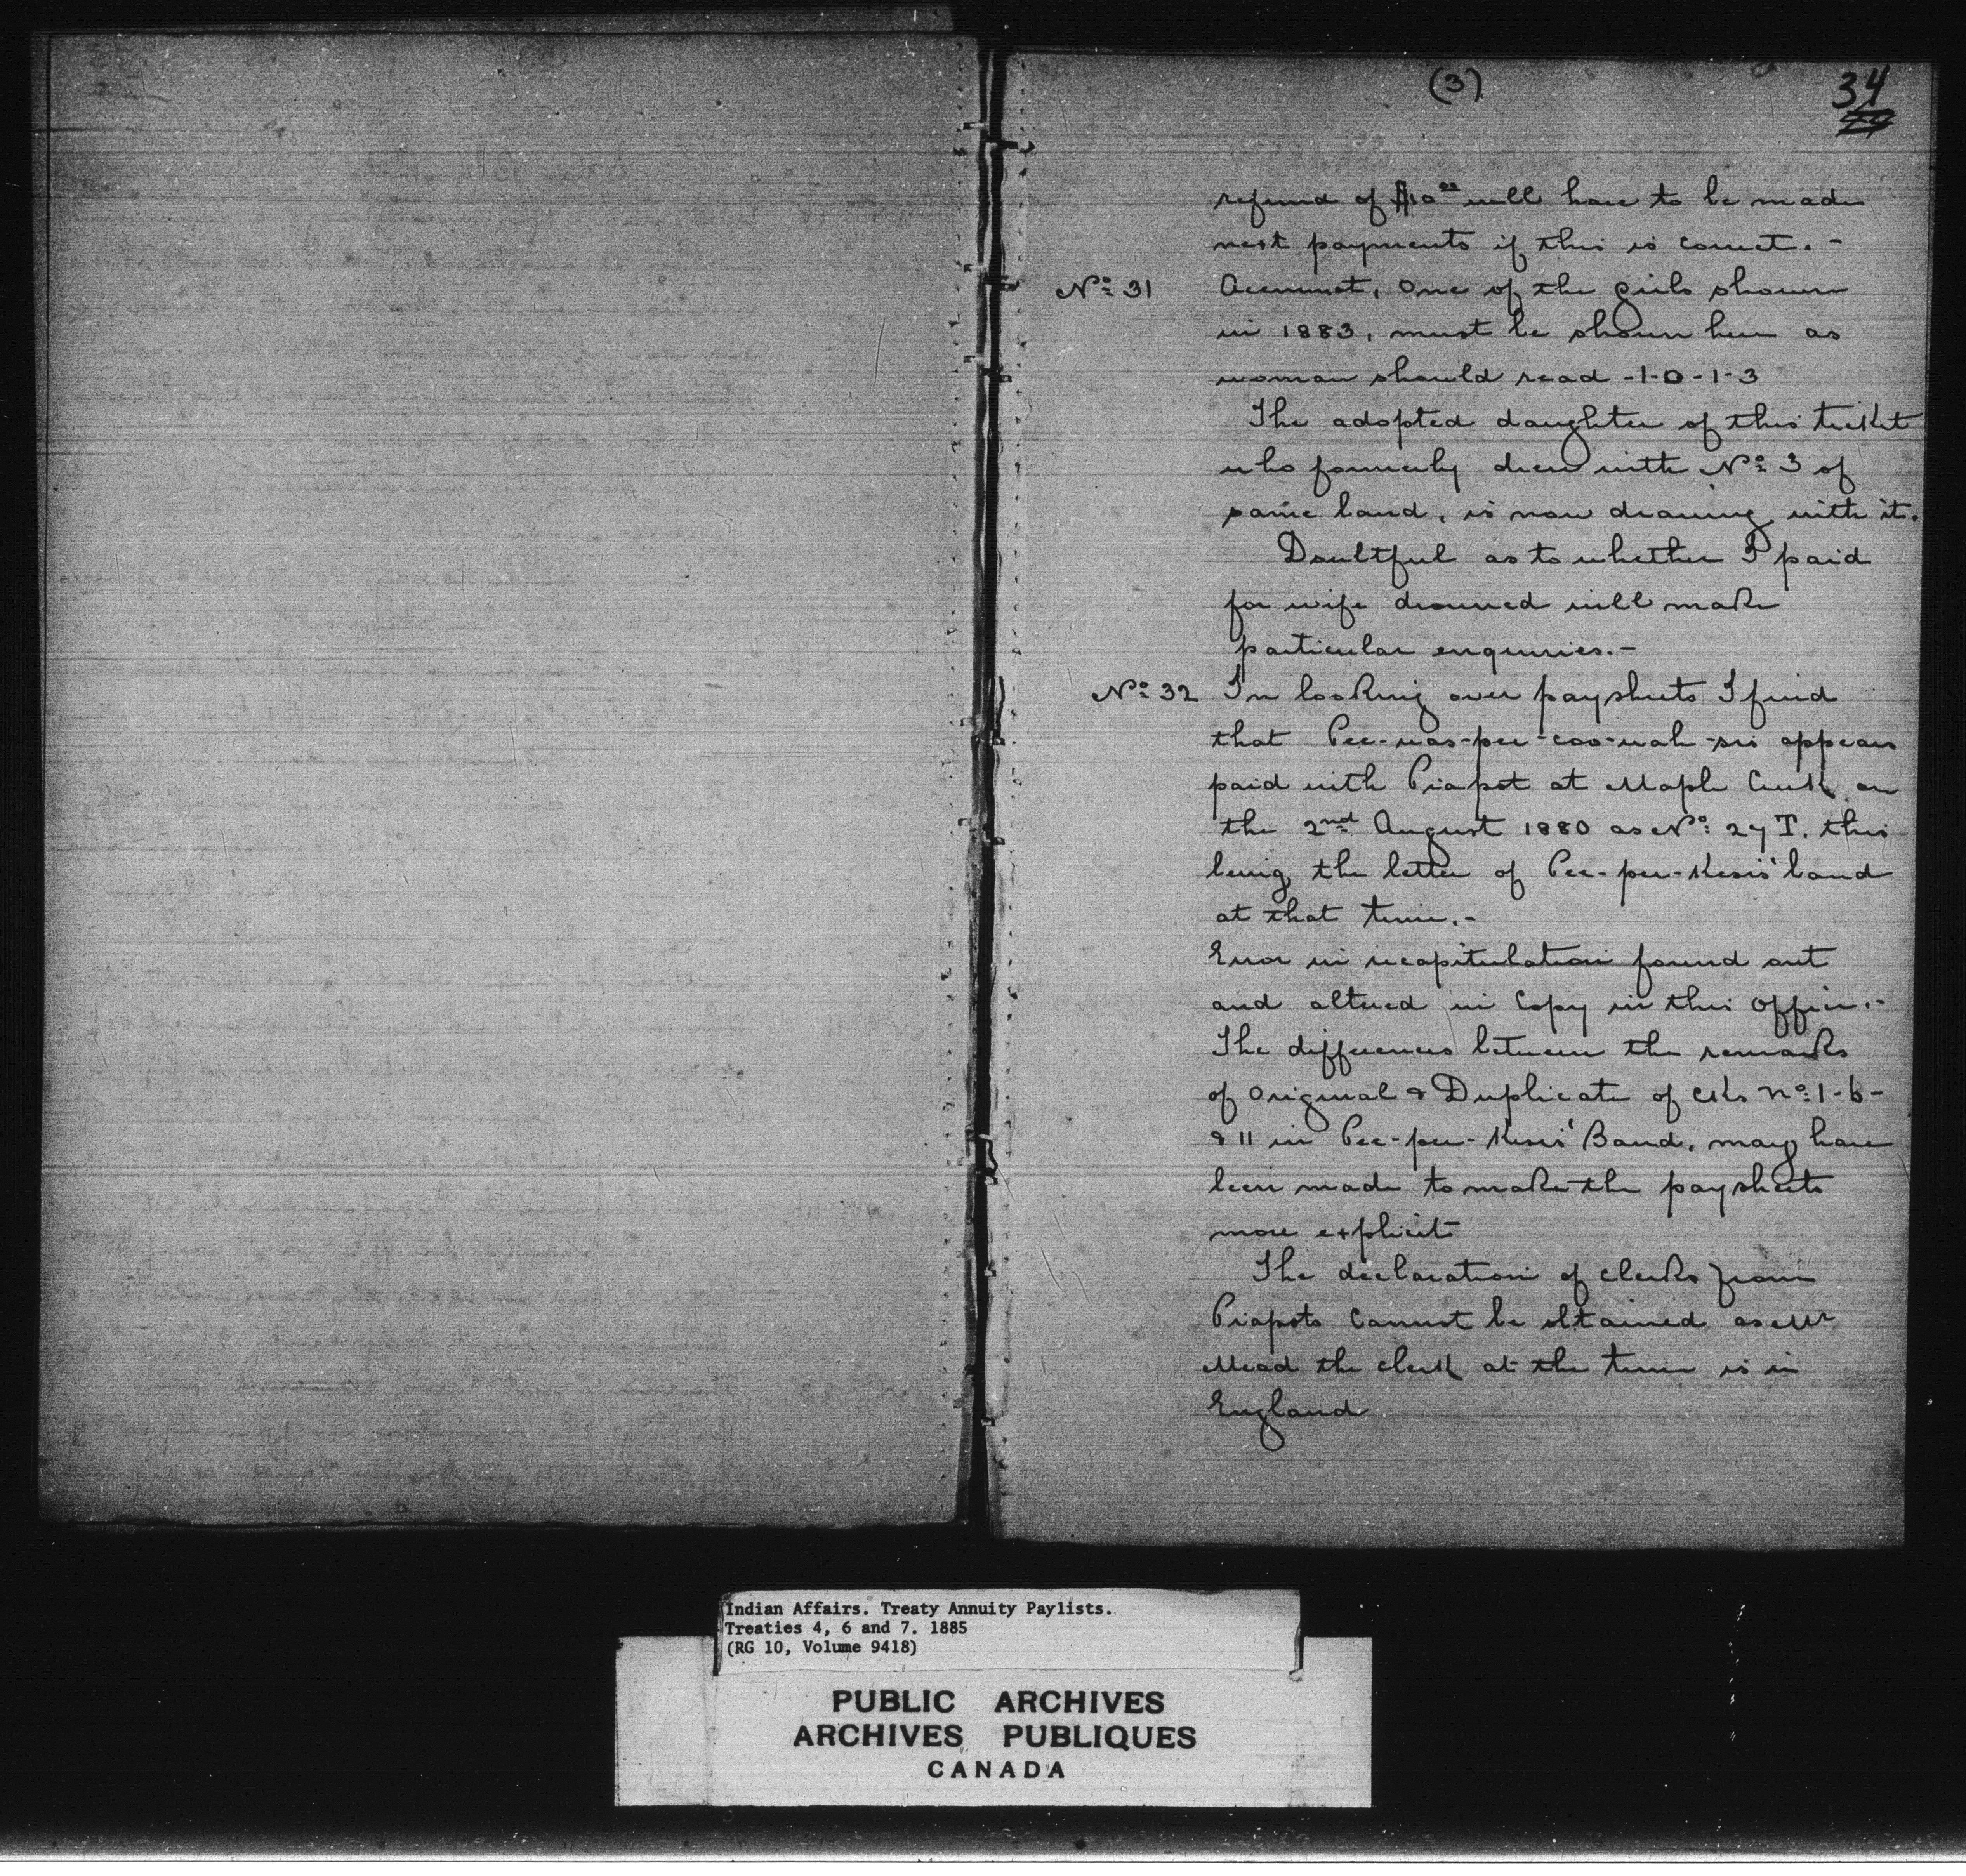 (3)
34
refund of $10.00 will have to be made
next payments if this is correct. -
No 31 Account, One of the girls shown
in 1883, must be shown here as
woman should read -1-0-1-3
The adopted daughter of this ticket
who formerly drew with No 3 of
same band, is now drawing with it.
Doubtful as to whether I paid
for wife drowned will make
particular enquiries. -
No 32 In looking over paysheets I find
that appears
paid with Piapot at Maple Creek on
the 2nd August 1880 as No 27 T. this
being the letter of Pee-pee-Kesis' band
at that time. -
Error in recapitulation found out
and altered in Copy in this Office. -
The differences between the remarks
of Original & Duplicate of No 1-6-
& 11 in Pee-pee-Kesis' Band, may have
been made to make the paysheets
more explicit
The declaration of clerks from
Piapots Cannot be obtained as Mr
Mead the clerk at the time is in
England
Indian Affairs. Treaty Annuity Paylists.
Treaties 4, 6 and 7. 1885
(RG 10, Volume 9418)
PUBLIC ARCHIVES
ARCHIVES PUBLIQUES
CANADA